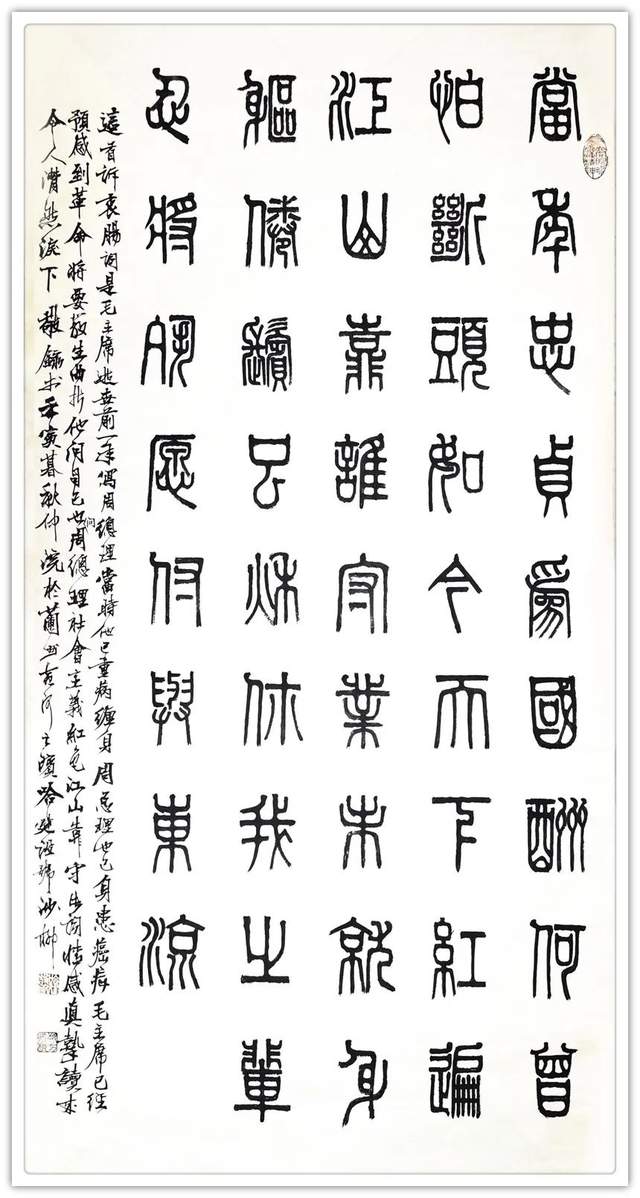 當年忠貞為國酬何曾
怕斷頭如今天下紅遍
江山靠誰守業未就身
軀倦鬢已秋你我之輩
忍將夙愿付與東流
這首訴衷腸詞是毛主席逝世前一年寫周總理當時他已重病纏身周总理也已身患癌疾毛主席已經
預感到革命將要發生曲折他問自己也問周總理社會主義紅色江山靠守情感真摯讀來
令人潸然淚下敬錄書壬寅暮秋仲浣於蘭州黃河之濱沙柳